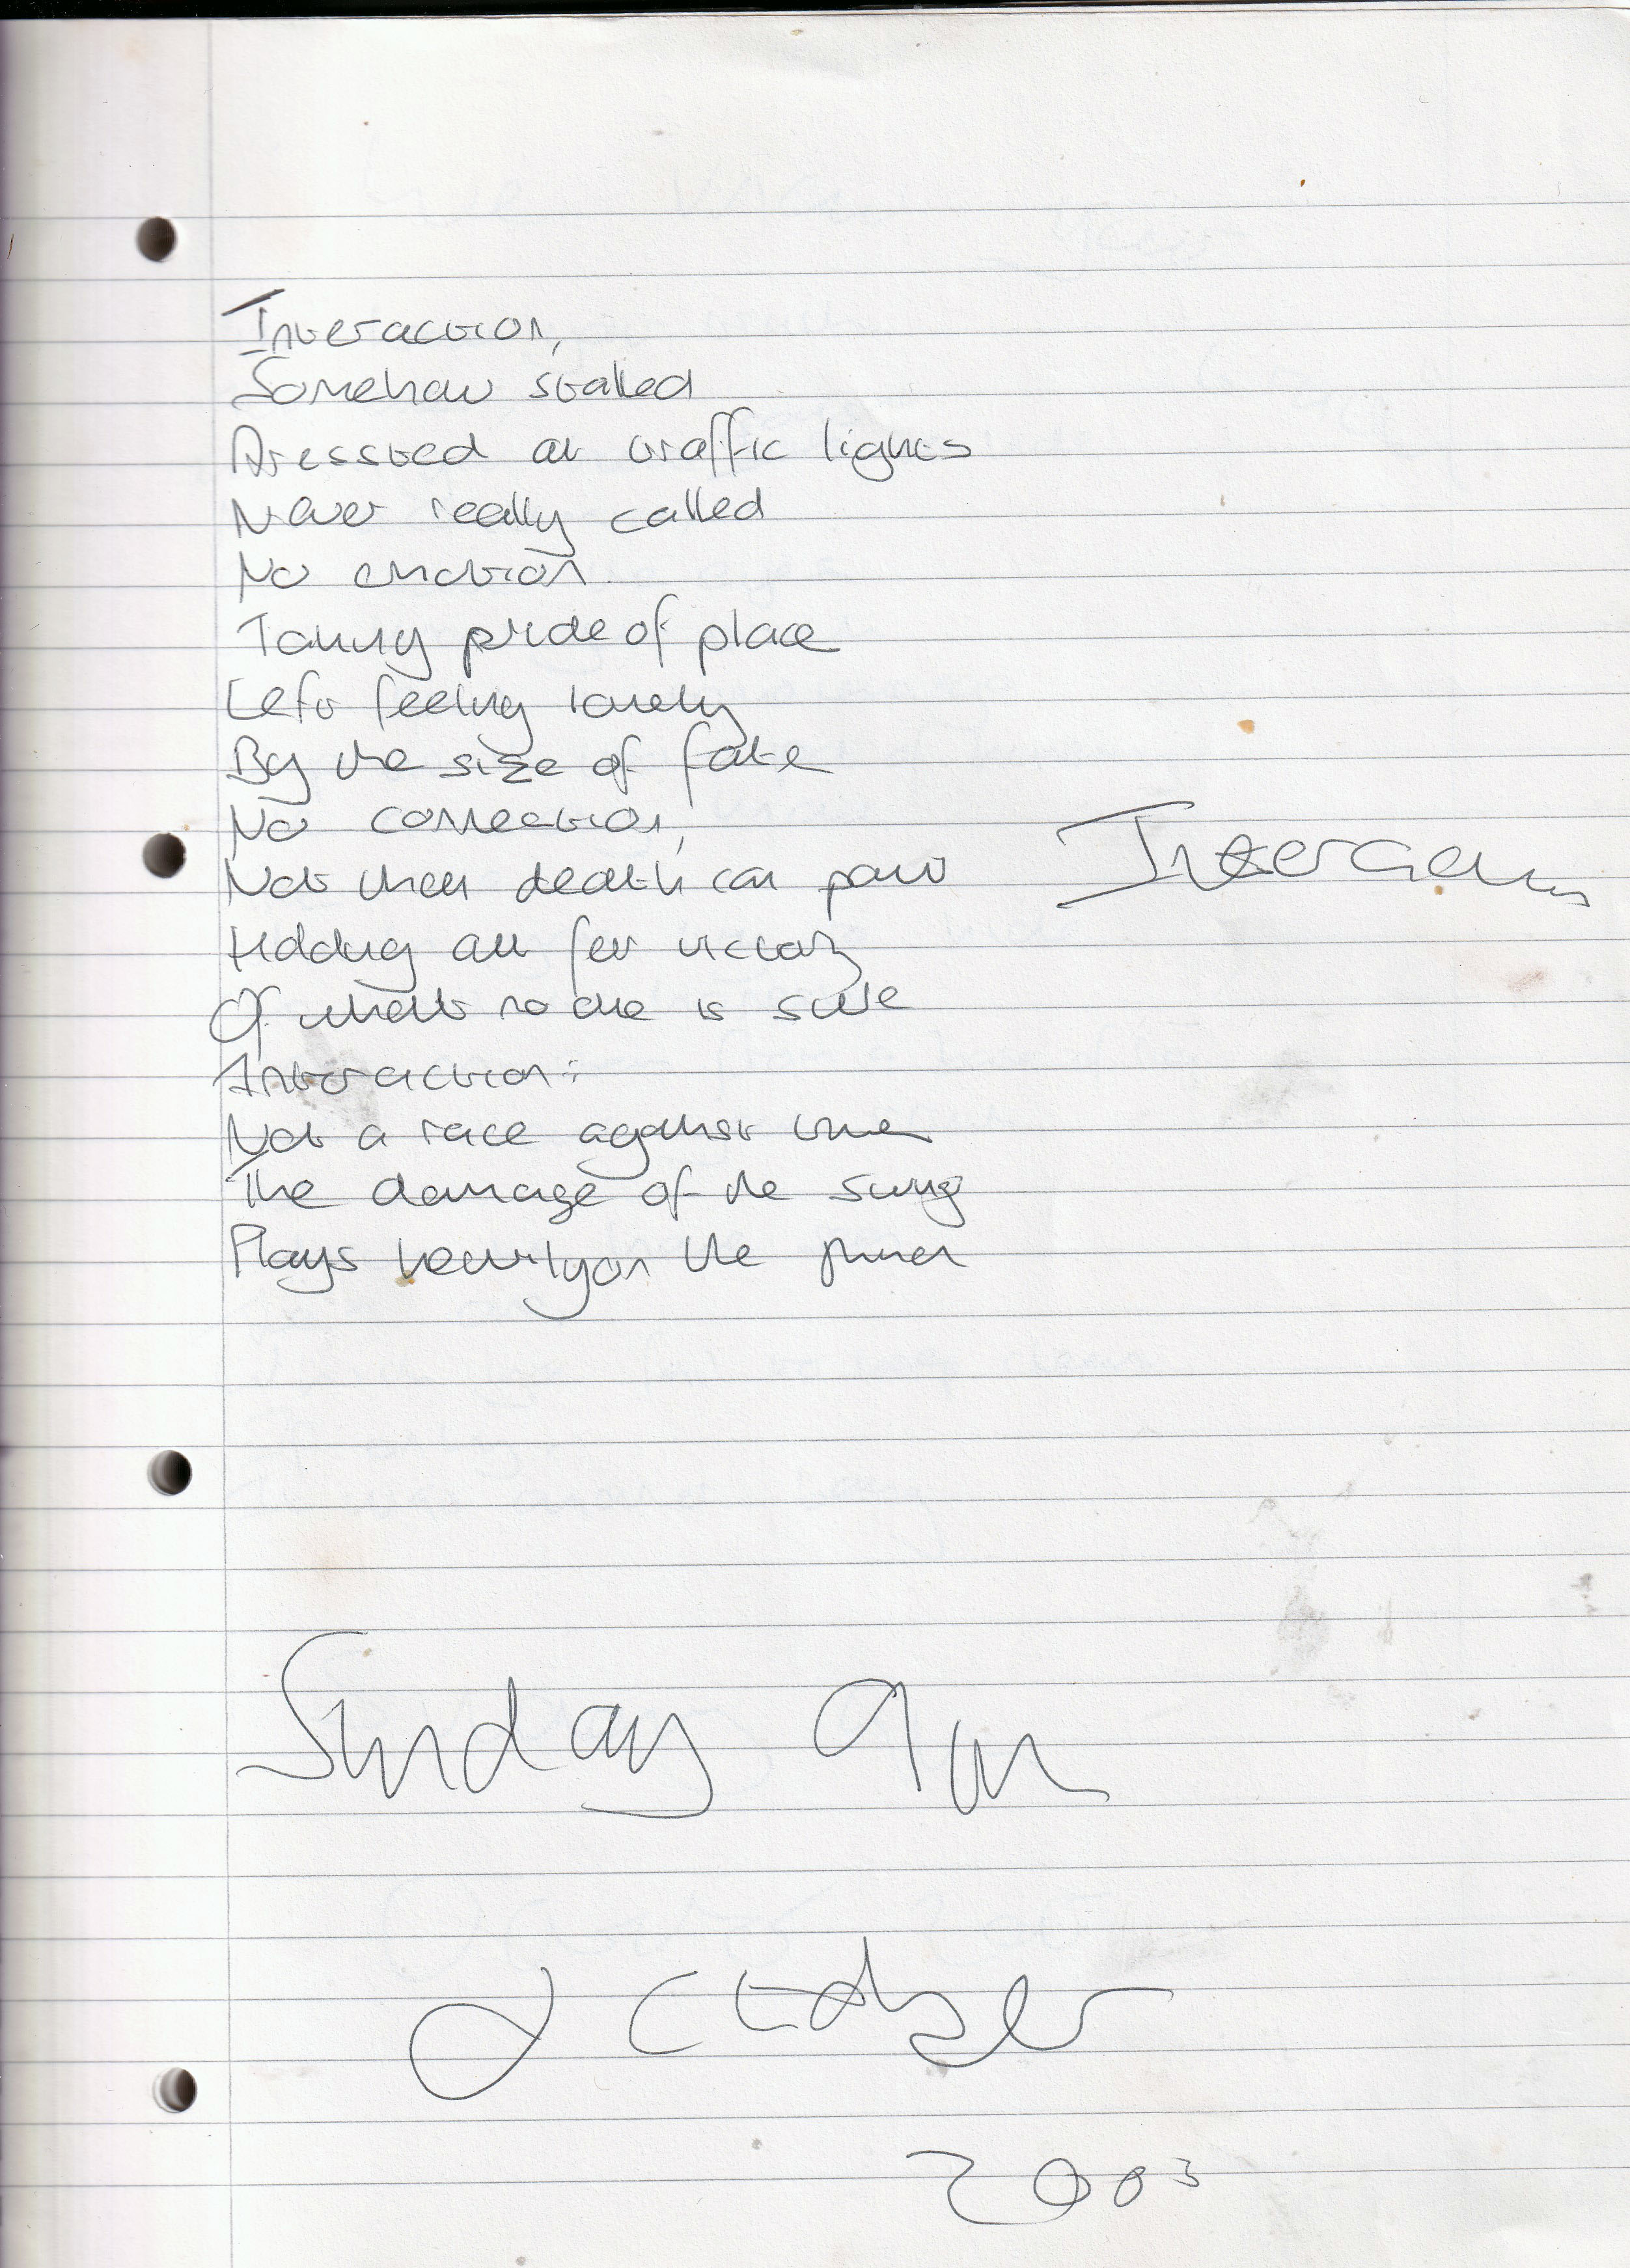 Interaction,
Somehow stalled
Arrested at traffic lights
Never really called
No emotion
Taking pride of place
Left feeling lonely
By the size of fate
No connection,
Not then death can
Holding all for victory
Of what no one is sure
Interaction:
Not a race against time
The damage of the swing
Plays heavily on the
Sunday 9
October
2003